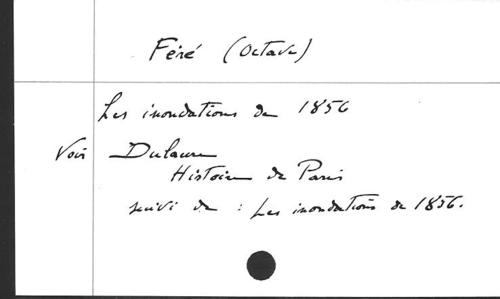 Féré (Octave)
Les inondations de 1856
Voir Dulaure
Histoire de Paris
suivi de : Les inondations de 1856.